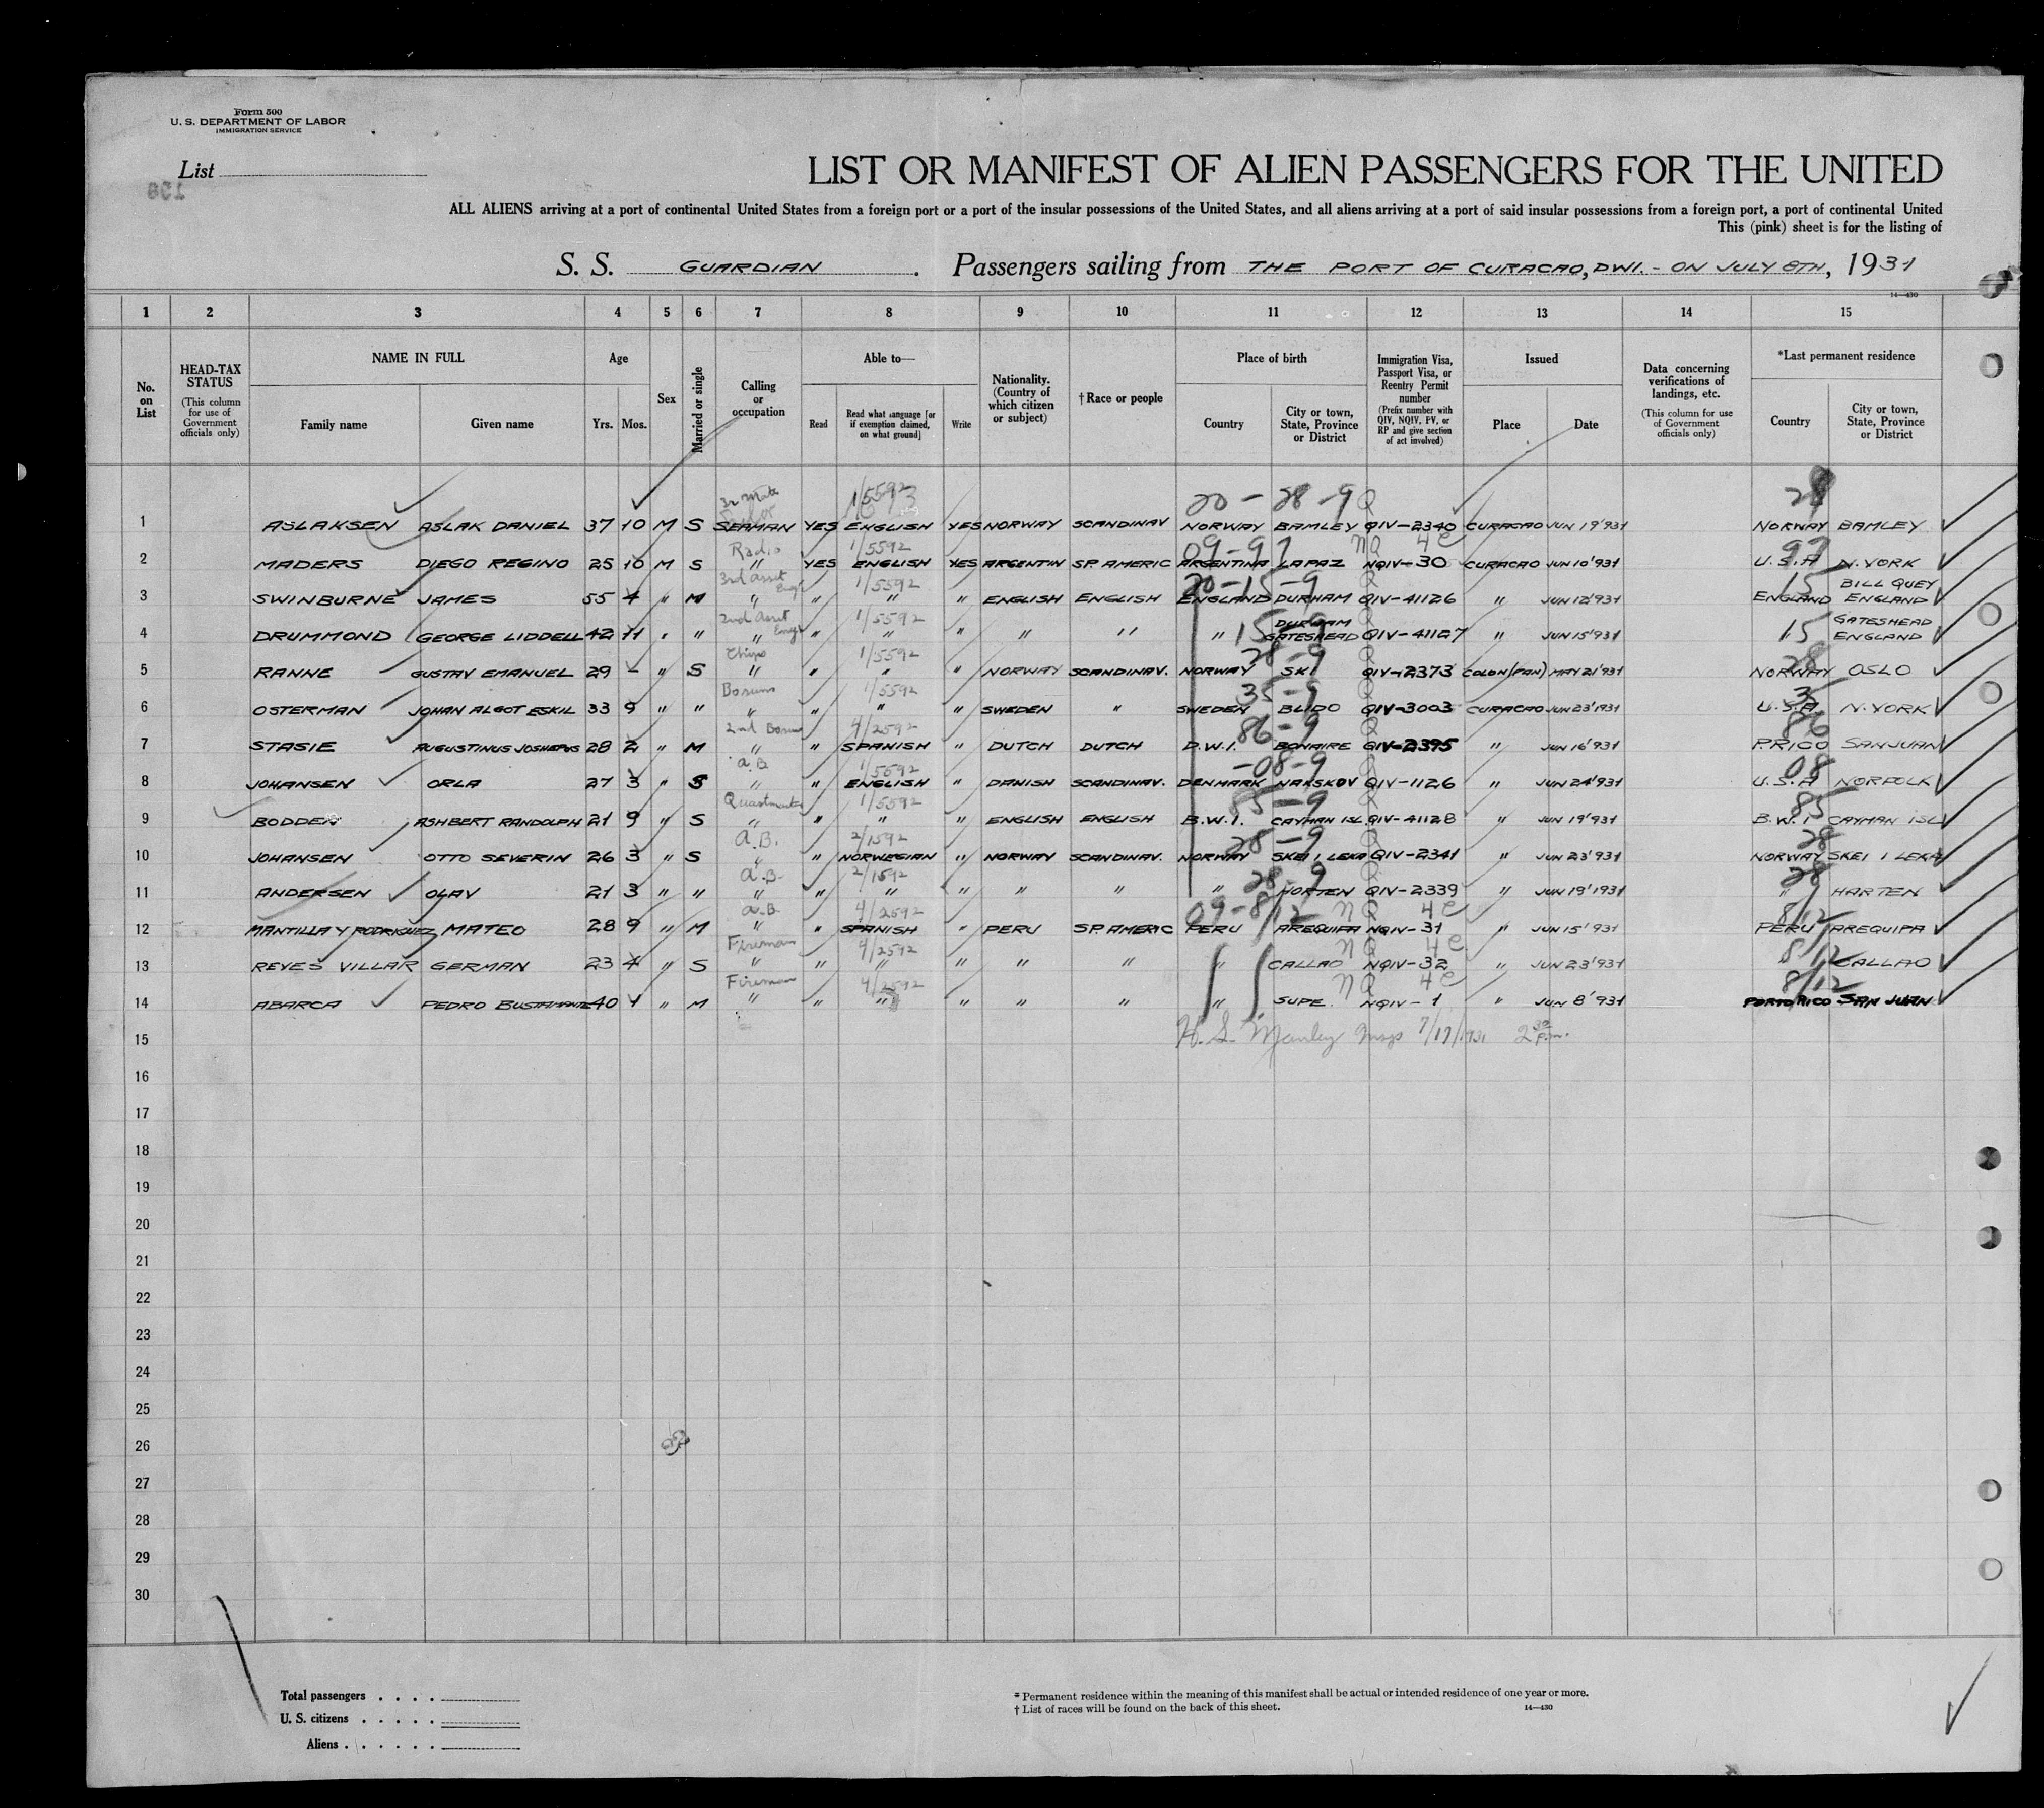 Form 500
U. S. DEPARTMENT OF LABOR
IMMIGRATION SERVICE
List
LIST OR MANIFEST OF ALIEN PASSENGERS FOR THE UNITED
ALL ALIENS arriving at a port of continental United States from a foreign port or a port of the insular possessions of the United States, and all aliens arriving at a port of said insular possessions from a foreign port, a port of continental United
This (pink) sheet is for the listing of
S. S. GUARDIAN . Passengers sailing from THE PORT OF CURACAO, DWI. - ON JULY 8TH, 1931
14—430
1 2 3 4 5 6 7 8 9 10 11 12 13 14 15
No. on List
HEAD-TAX STATUS
(This column for use of Government officials only)
NAME IN FULL
Family name Given name
Age
Yrs. Mos.
Sex
Married or single
Calling or occupation
Able to—
Read
Read what language [or if exemption claimed, on what ground]
Write
Nationality. (Country of which citizen or subject)
†Race or people
Place of birth
Country
City or town, State, Province or District
Immigration Visa, Passport Visa, or Reentry Permit number
(Prefix number with QIV, NQIV, PV, or RP and give section of act involved)
Issued
Place Date
Data concerning verifications of landings, etc.
(This column for use of Government officials only)
*Last permanent residence
Country
City or town, State, Province or District
3r Mate 1/5592 20-28-9 Q 28
1 ASLAKSEN ASLAK DANIEL 37 10 M S SEAMAN YES ENGLISH YES NORWAY SCANDINAV NORWAY BAMLEY QIV-2340 CURACAO JUN 19'931 NORWAY BAMLEY
Radio 1/5592 09-97 NQ 4e 99
2 MADERS DIEGO REGINO 25 10 M S " YES ENGLISH YES ARGENTIN SP. AMERIC ARGENTINA LA PAZ NQIV-30 CURACAO JUN 10'931 U.S.A N.YORK
3rd asst Engr 1/5592 20-15-9 Q 15 BILL QUEY
3 SWINBURNE JAMES 55 4 " M " " " " ENGLISH ENGLISH ENGLAND DURHAM QIV-41126 " JUN 12'931 ENGLAND ENGLAND
2nd asst Engr 1/5592 15-9 DURHAM Q 15 GATESHEAD
4 DRUMMOND GEORGE LIDDELL 42 11 " " " " " " " " " GATESHEAD QIV-41127 " JUN 15'931 " ENGLAND
Chips 1/5592 28-9 Q 28
5 RANNE GUSTAV EMANUEL 29 - " S " " " " NORWAY SCANDINAV. NORWAY SKI QIV-2373 COLON (PAN) MAY 21'931 NORWAY OSLO
Bosuns 1/5592 35-9 Q
6 OSTERMAN JOHAN ALGOT ESKIL 33 9 " " " " " " SWEDEN " SWEDEN BLIDO QIV-3003 CURACAO JUN 23'1931 U.S.A. N.YORK
2nd Bosuns 4/2592 86-9 Q 86
7 STASIE AUGUSTINUS JOSHEPUS 28 2 " M " " SPANISH " DUTCH DUTCH D.W.I. BONAIRE QIV-2395 " JUN 16'931 P.RICO SANJUAN
a.B 1/5592 -08-9 Q 08
8 JOHANSEN ORLA 27 3 " S " " ENGLISH " DANISH SCANDINAV. DENMARK NAKSKOV QIV-1126 " JUN 24'931 U.S.A NORFOLK
1/5592 85-9 Q 85
9 BODDEN ASHBERT RANDOLPH 21 9 " S " " " " ENGLISH ENGLISH B.W.I. CAYMAN ISL. QIV-41128 " JUN 19'931 B.W.I CAYMAN ISL
a.B. 2/1592 28-9 Q 28
10 JOHANSEN OTTO SEVERIN 26 3 " S " " NORWEGIAN " NORWAY SCANDINAV. NORWAY SKEI I LEKA QIV-2341 " JUN 23'931 NORWAY SKEI I LEKA
a.B. 2/1592 28-9 Q 28
11 ANDERSEN OLAV 21 3 " " " " " " " " " HORTEN QIV-2339 " JUN 19'1931 " HARTEN
a.B. 4/2592 09-8/12 NQ 4e 8/12
12 MANTILLA Y RODRIGUEZ MATEO 28 9 " M " " SPANISH " PERU SP. AMERIC PERU AREQUIPA NQIV-31 " JUN 15'931 PERU AREQUIPA
Fireman 4/2592 NQ 4e 8/12
13 REYES VILLAR GERMAN 23 4 " S " " " " " " " CALLAO NQIV-32 " JUN 23'931 " CALLAO
Fireman 4/2592 NQ 4e 8/12
14 ABARCA PEDRO BUSTAMANTE 40 1 " M " " " " " " " SUPE. NQIV-1 " JUN 8'931 PORTO RICO SAN JUAN
15 H. S. Manley Insp 7/17/1931 2 30 p.m.
16
17
18
19
20
21
22
23
24
25
26
27
28
29
30
Total passengers . . . .
U. S. citizens . . . . .
Aliens . . . . . .
* Permanent residence within the meaning of this manifest shall be actual or intended residence of one year or more.
† List of races will be found on the back of this sheet.
14—430